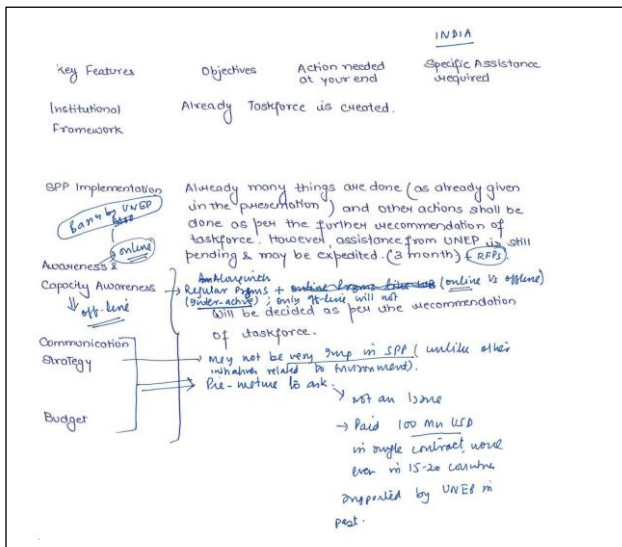 INDIA
Key Features Objectives Action needed at your end Specific Assistance required
Institutional Framework Already Taskforce is created.
SPP Implementation Already many things are done (as already given
in the presentation) and other actions shall be
done as per the further recommendation of
taskforce. However, assistance from UNEP is still
pending & may be expedited. (3 month) RFPs
by UNEP
online
Awareness &
Capacity Awareness
off-line
Regular Prgms + (online Vs offline)
(Inter-active); only off-line will not
will be decided as per the recommendation
of taskforce.
Communication
Strategy
may not be very imp in SPP (unlike other
initiatives related to Environment).
Pre-mature to ask.
Budget
not an Issue
→ Paid 100 Mn USD
in single contract, none
even in 15-20 countries
supported by UNEP in
past.